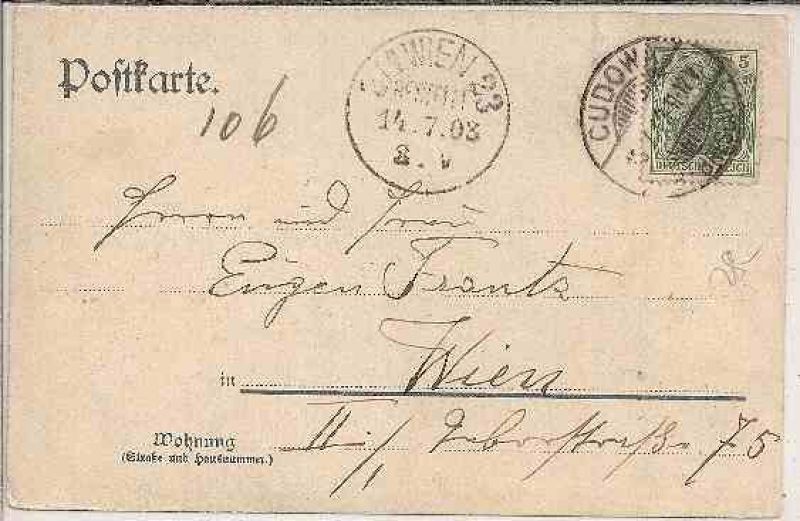 Postkarte.
106
WIEN
14.7.03
8.V
CUDOWA
5
DEUTSCHES REICH
Herrn und Frau
Eugen Frantz
in Wien
Wohnung
(Straße und Hausnummer.)
II/1 75